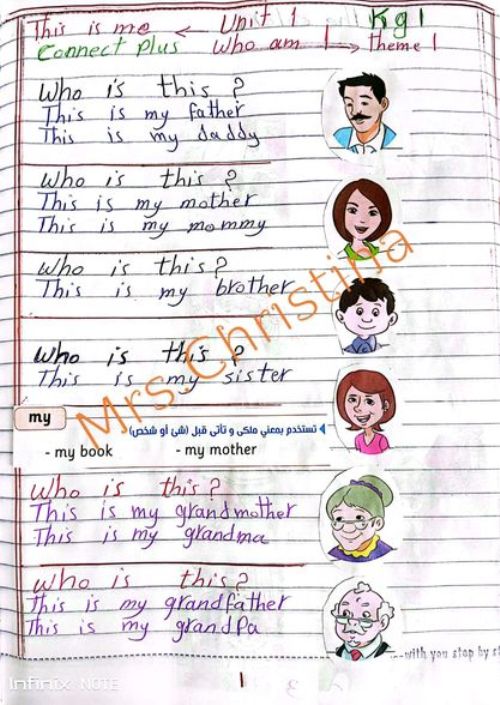 This is me ← Unit 1 Kg1
Connect Plus Who am I → Theme 1
Who is this ?
This is my father
This is my daddy
Who is this ?
This is my mother
This is my mommy
Who is this?
This is my brother
Who is this ?
This is my sister
my
تستخدم بمعني ملكى و تأتى قبل (شئ أو شخص)
- my book - my mother
Who is this?
This is my grandmother
This is my grandma
Who is this?
This is my grandfather
This is my grandpa
with you step by st
1
Mrs.Christina
Infinix NOTE